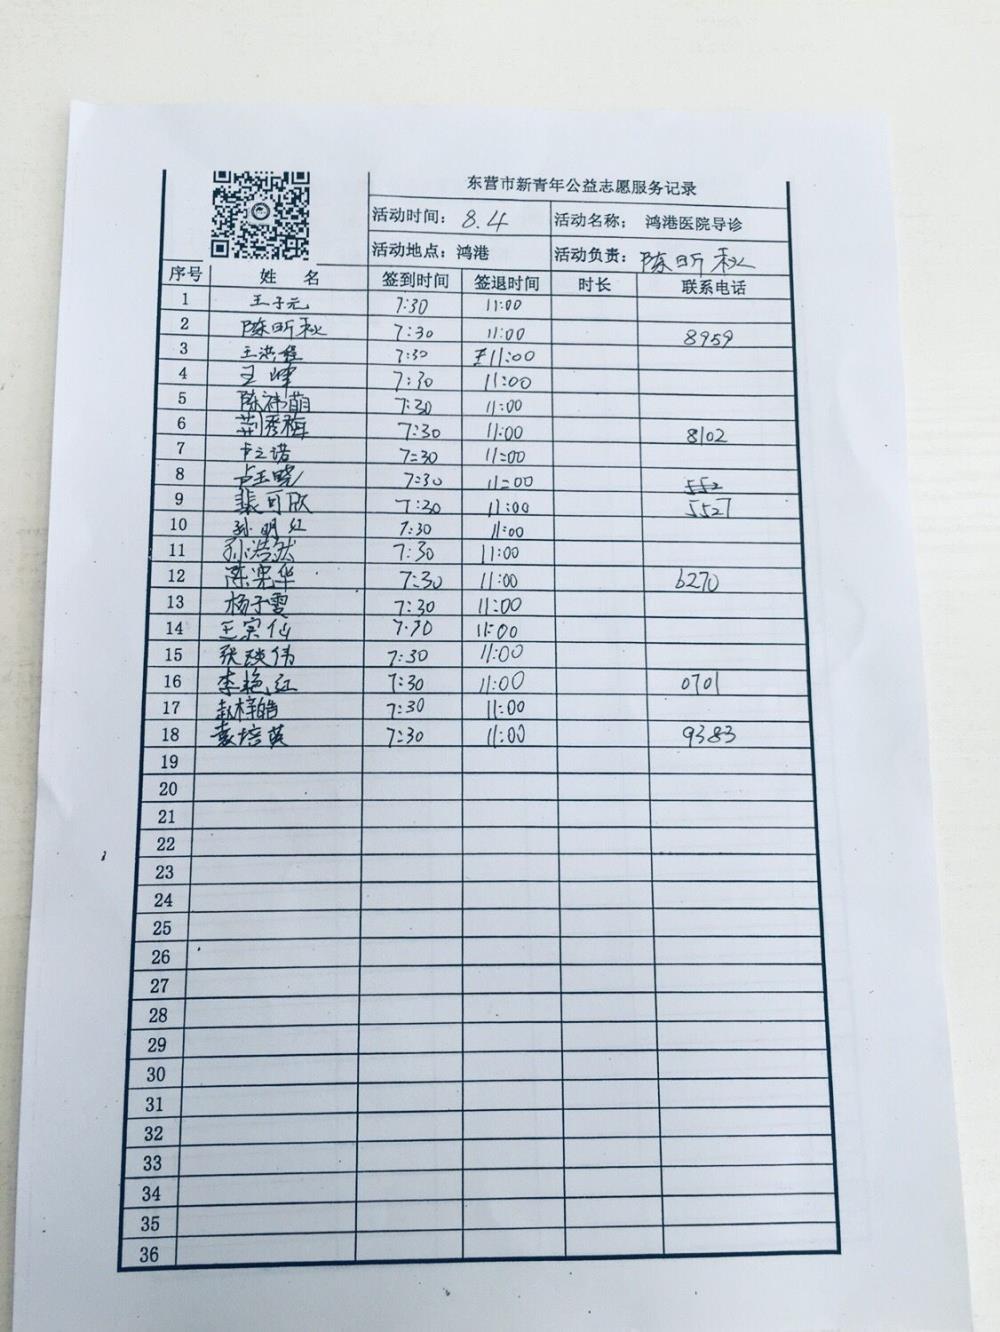 东营市新青年公益志愿服务记录
活动时间： 8.4 活动名称： 鸿港医院导诊
活动地点：鸿港 活动负责：陈昕秋
序号 姓 名 签到时间 签退时间 时长 联系电话
1 王子元 7:30 11:00
2 陈昕秋 7:30 11:00 8959
3 王洪程 7:30 11:00
4 王峰 7:30 11:00
5 陈祎萌 7:30 11:00
6 荆秀梅 7:30 11:00 8102
7 卞之诺 7:30 11:00
8 卢玉晓 7:30 11:00 552
9 裴可欣 7:30 11:00 5527
10 孙明红 7:30 11:00
11 孙浩然 7:30 11:00
12 陈宪华 7:30 11:00 6270
13 杨子雯 7:30 11:00
14 王宗仙 7:30 11:00
15 张琰伟 7:30 11:00
16 李艳红 7:30 11:00 0701
17 赵梓皓 7:30 11:00
18 袁培英 7:30 11:00 9383
19
20
21
22
23
24
25
26
27
28
29
30
31
32
33
34
35
36